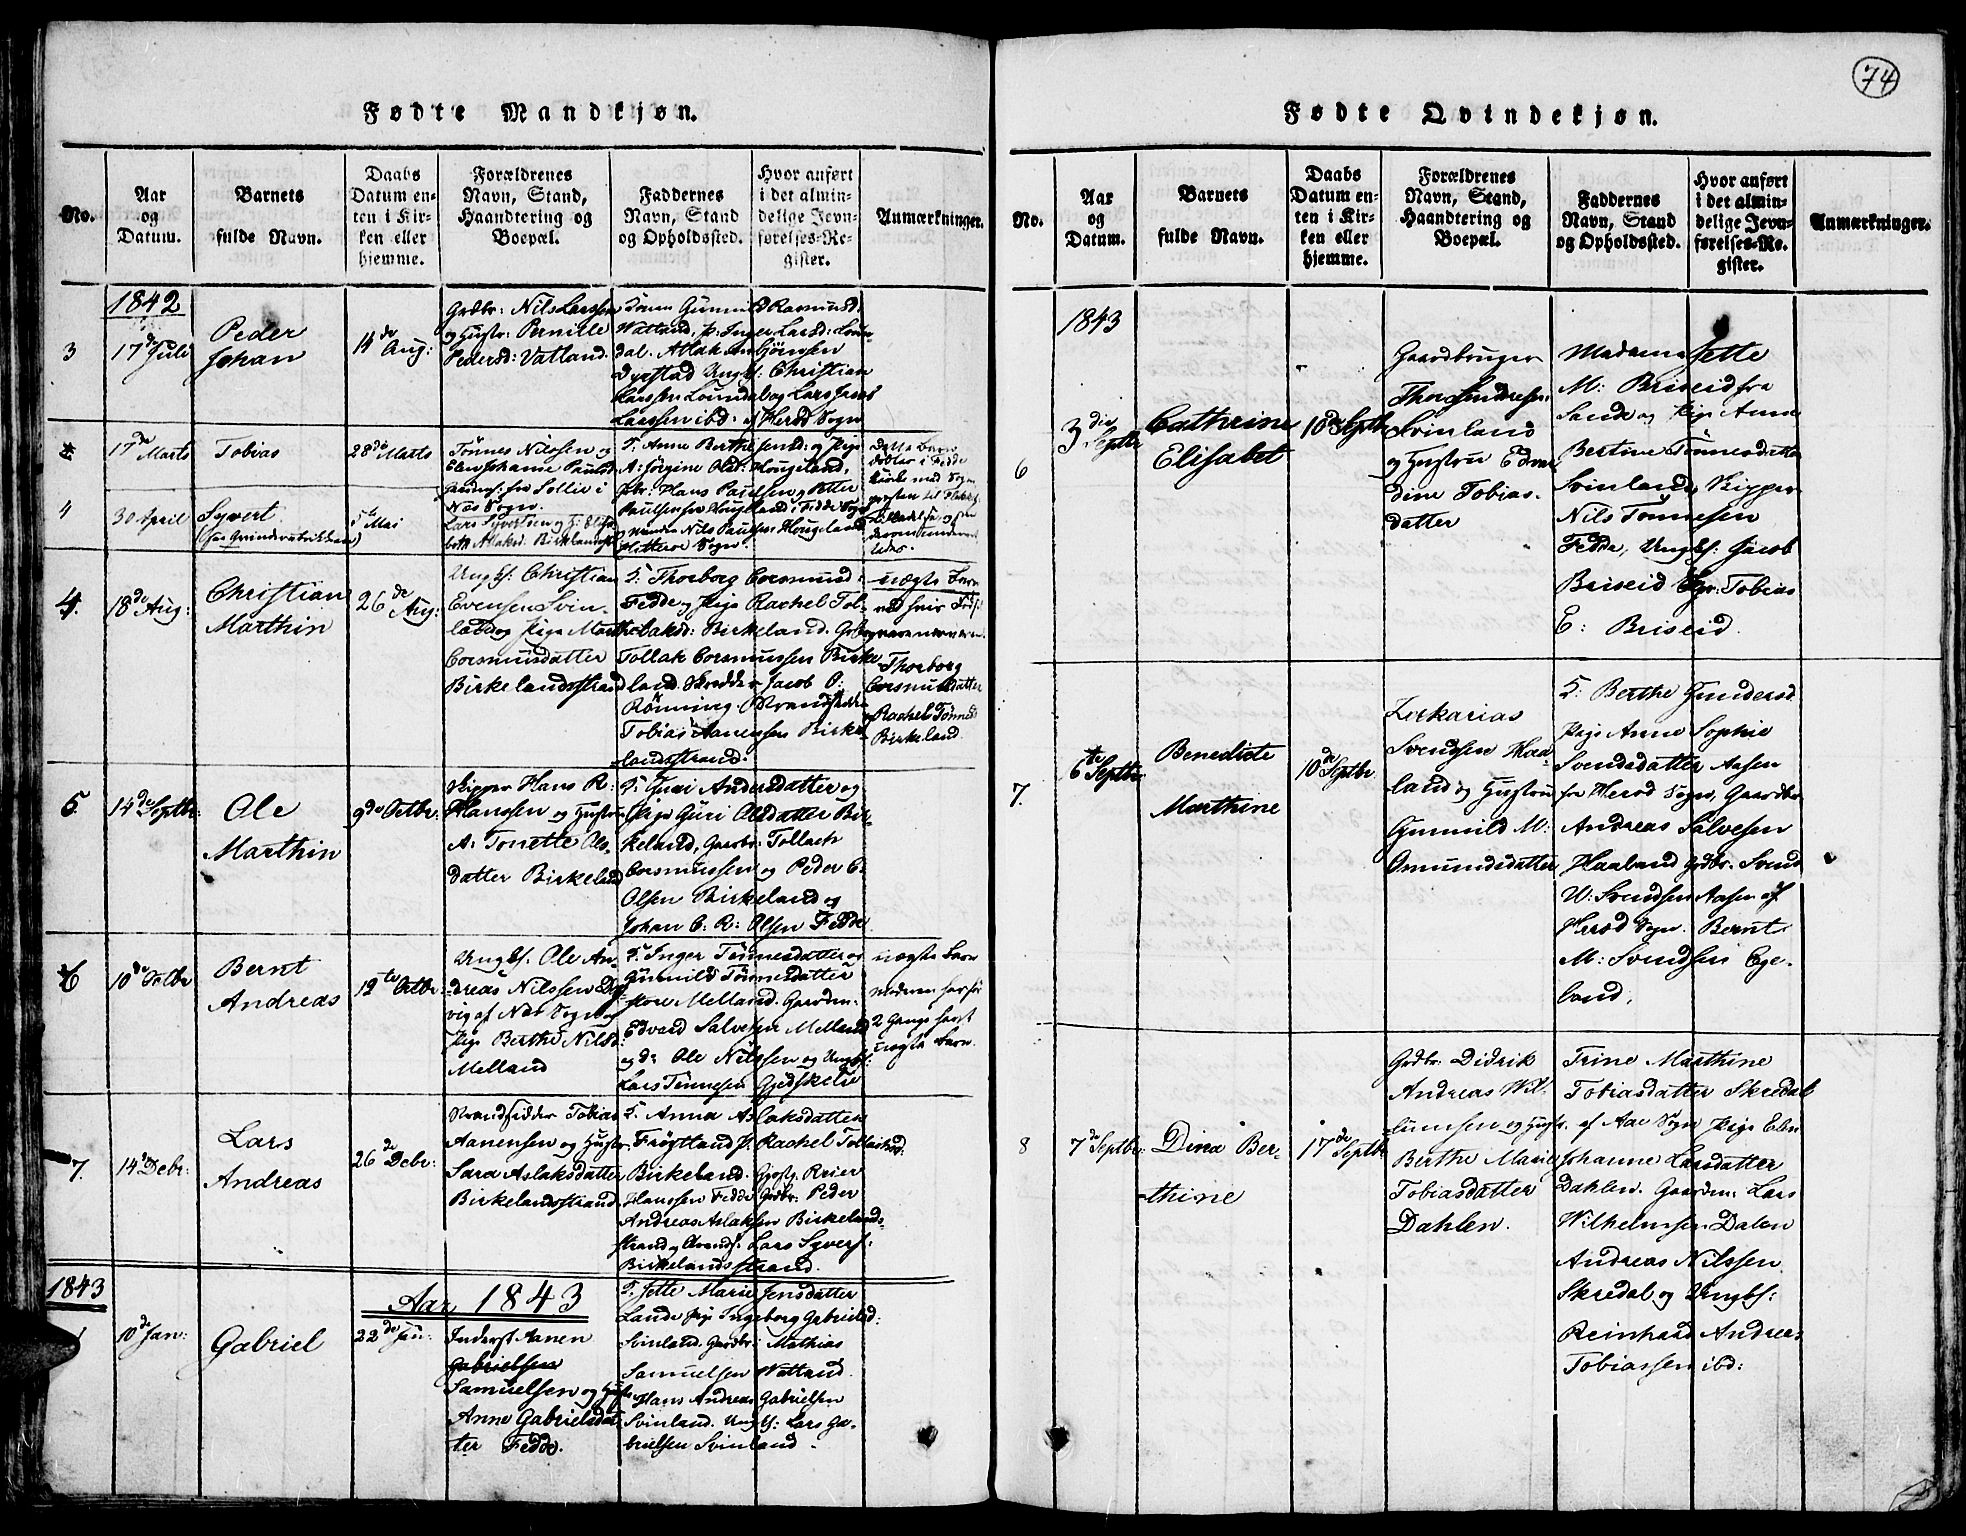 74
Fødte Mandkjøn.
No.
Aar
og
Datum.
Barnets
fulde Navn.
Daabs
Datum en-
ten i Kir-
ken eller
hjemme.
Forældrenes
Navn, Stand,
Haandtering og
Boepæl.
Faddernes
Navn, Stand
og Opholdssted.
Hvor anført
i det almin-
delige Jevn-
førelses-Re-
gister.
Anmærkninger.
1842
3
17de Juli
Peder
Johan
14de Aug:
Grdbr: Nils Larssen
og Hustr: Pernille
Pedersd: Vatland.
Gunnild Rasmusd:
Watland, p: Inger Larsd: Loun-
dal. Atlak Jörnsen
Dyrstad Ungk: Christian
Larssen Loundal og Lars Jacob
Larssen ibd: af Herod Sogn
17de Marts
Tobias
28de Marts
Tönnes Nilssen og
Elen Johanne Paulsd:
fra Sollie i
Næs Sogn.
F. Anne Berthe og Pige
A: Jörgine Olsd: Hougeland,
Hans Paulsen og Petter
Paulsen Hougeland i Fedde Sogn
Nils Paulsen Hougeland
Hitterøe Sogn.
4
30 April
Syvert
5te Mai
Lars Syvertsen og
Birkelandsstr
4.
18de Aug:
Christian
Marthin
26de Aug:
Ungk: Christian
Evensen Svin-
land og Pige Marthe
Corsmusdatter
Birkelandsstrand
F. Thorborg Corsmusd:
Fedde og Pige Rachel Tol-
laksd: Birkeland.
Tollak Corsmussen Birke
land. Skredder Jacob O:
Rönning.
Tobias Aanensen Birke-
landsstrand.
uægte Barn
Thorborg
Corsmusdatter
Rachel Tönnesd
Birkeland
5
14de Septbr:
Ole
Marthin
9de Octbr:
Skipper Hans R:
Hanssen og Hustr
A: Tonette Ols-
datter Birkeland
F. Guri Andersdatter og
Pige Guri Olsdatter Bir-
keland, Gaarbr: Tollach
Corsmussen og Peder C.
Olsen Birkeland og
Johan C. R: Olsen Fedde
6
10de Octbr
Bernt
Andreas
19te Octbr
Ungk: Ole An-
dreas Nilssen
vig af Næs Sogn og
Pige Berthe Nilsd:
Melland
F. Inger Tönnesdatter og
Gunnild Tönnesdatter
Melland. Gaardm:
Edvard Salvesen Melland
og do Ole Nilssen og Ungk:
Lars Tönnesen Gjedskelie
uægte Barn
moderen har før
2 Gange havt
uægte Barn.
7.
14de Debr:
Lars
Andreas
26de Debr:
Strandsidder Tobias
Aanensen og Hustr
Sara Aslaksdatter
Birkelandsstrand
F. Anna Aslaksdatter
Frøytland p. Rachel Tollaksd:
Birkeland. Gjæstg. Reier
Hanssen Fedde Grdbr: Peder
Andreas Aslaksen Birkelands-
strand og Strands. Lars Syvers:
Birkelandsstrand.
1843
Aar 1843
1
10de Jan:
Gabriel
22de Jan:
Inderst Aanen
Gabrielsen
Samuelsen og Hustr
Anne Gabrielsdat
ter Fedde.
F. Jette Marie Jensdatter
Lande Pige Ingeborg Gabrielsd:
Svinland. Gaardbr: Mathias
Samuelsen Watland.
Hans Andreas Gabrielsen
Svinland. Ungk: Lars Ga-
brielsen Svinland.
Fødte Qvindekjøn.
No.
Aar
og
Datum.
Barnets
fulde Navn.
Daabs
Datum en-
ten i Kir-
ken eller
hjemme.
Forældrenes
Navn, Stand,
Haandtering og
Boepæl.
Faddernes
Navn, Stand
og Opholdssted.
Hvor anført
i det almin-
delige Jevn-
førelses-Re-
gister.
Anmærkninger.
1843
6
3die Septbr
Cathrine
Elisabet
10de Septbr
Gaardbruger
Svinland
og Hustru Edvar
dine Tobias-
datter
Madame Jette
M: Briseid fra
Sande og Pige Anne
Bertine Tönnesdatter
Svinland, Skipper
Nils Tönnesen
Fedde, Ungk: Jacob
Briseid Tobias
E: Briseid.
7.
6te Septbr
Benedicte
Marthine
10de Septbr
Zakarias
Svendsen Haa-
land og Hustru
Gunnild M:
Osmundsdatter
F. Berthe Gundersd
Pige Anne Sophie
Svendsdatter Aasen
fra Herod Sogn, Gaardbr
Andreas Salvesen
Haaland Grdbr. Svend
W: Svendsen Aasen af
Herod Sogn. Bernt
M: Svendsen Ege-
land.
8
7de Septbr:
Dina Ber-
thine
17de Septbr
Grdbr: Didrik
Andreas Wil-
lumsen og Hustr.
Berthe Marie
Tobiasdatter
Dahlen.
Trine Marthine
Tobiasdatter Skredal
af Aae Sogn Pige Elen
Johanne Larsdatter
Dahlen. Gaardm: Lars
Wilhelmsen Dalen
Andreas Nilssen
Skredal og Ungk:
Reinhard Andreas
Tobiassen ibd: